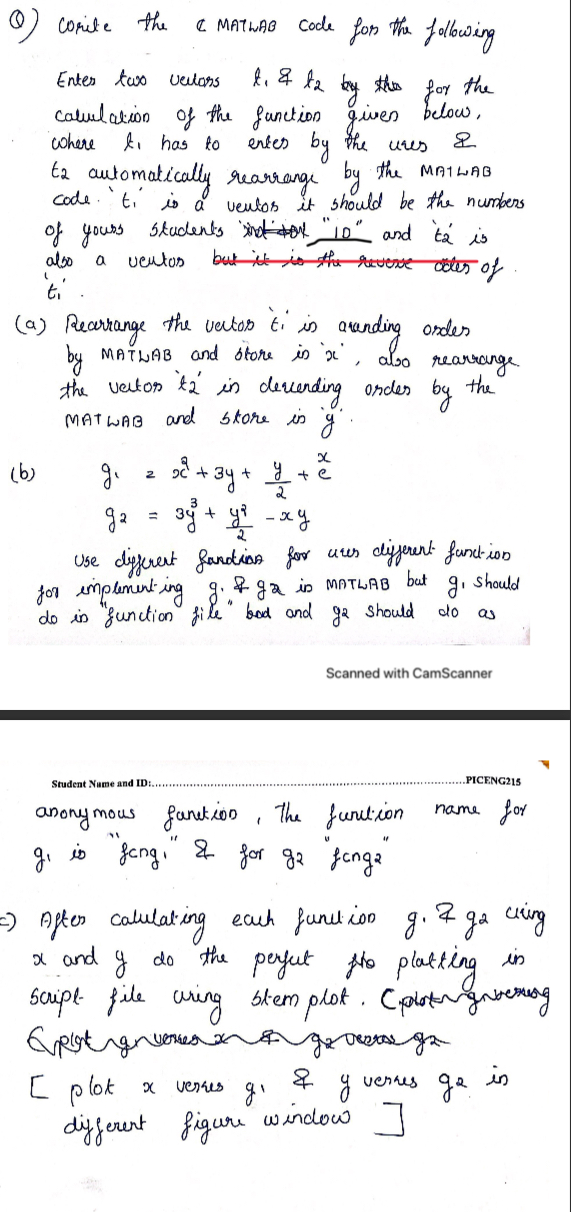 Q) Write the MATLAB code for the following
Enter two vectors t1 & t2 by for the
calculation of the function given below,
where t1 has to enter by the user &
t2 automatically rearrange by the MATLAB
code. 't1' is a vector it should be the numbers
of yours students "ID" and 't2' is
also a vector but it is the reverse order of
't1'.
(a) Rearrange the vector 't1' in ascending order
by MATLAB and store in 'x', also rearrange
the vector 't2' in descending order by the
MATLAB and store in 'y'.
(b) g1 = x² + 3y + y/2 + e^x
g2 = 3y³ + y²/2 - xy
Use different functions for different function
for implementing g1 & g2 in MATLAB but g1 should
do in "function file" and g2 should do as
Scanned with CamScanner
Student Name and ID:..........PICENG215
anonymous function, The function name for
g1 is "fcng1" & for g2 "fcng2"
c) After calculating each function g1 & g2 using
x and y do the perfect plotting in
script file using stem plot.
[ plot x verses g1 & y verses g2 in
different figure window ]